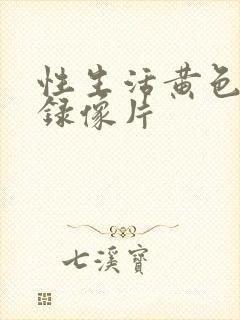 性生活黄色
录像片
七溪寶